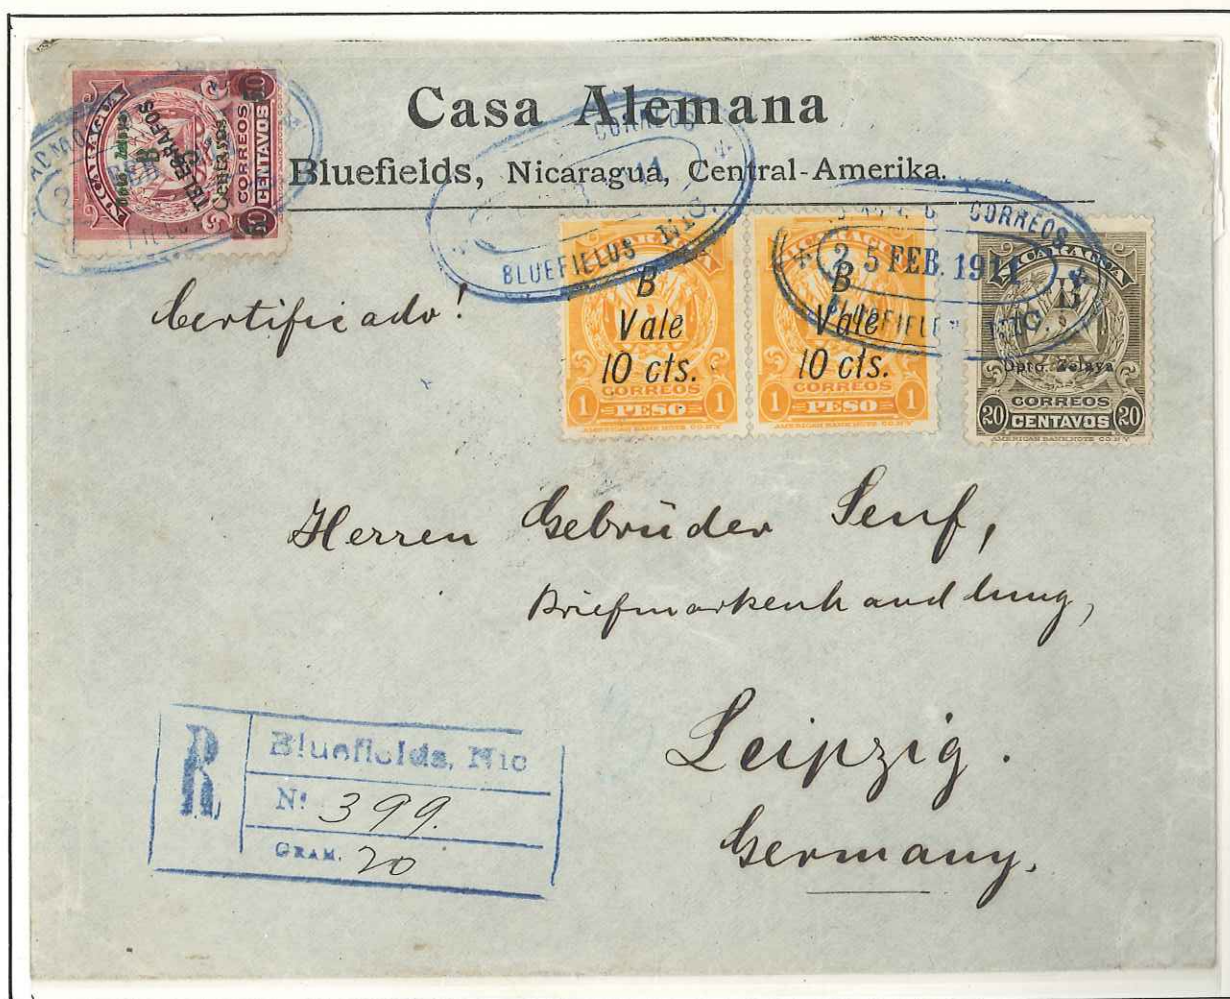 Casa Alemana
Bluefields, Nicaragua, Central-Amerika.
NICARAGUA
B
TELEGRAFOS
Centavos
CORREOS
50 CENTAVOS 50
CORREOS
BLUEFIELDS NIC.
Certificado!
B
Vale
10 cts.
CORREOS
1 PESO 1
AMERICAN BANK NOTE CO. N.Y.
NICARAGUA
B
Vale
10 cts.
CORREOS
1 PESO 1
AMERICAN BANK NOTE CO. N.Y.
CORREOS
25 FEB. 1911
BLUEFIELDS NIC.
NICARAGUA
B
Dpto. Zelaya
CORREOS
20 CENTAVOS 20
AMERICAN BANK NOTE CO. N.Y.
Herren Gebrüder Senf,
Briefmarkenhandlung,
Leipzig.
Germany.
R
Bluefields, Nic
Nº 399.
GRAM. 20